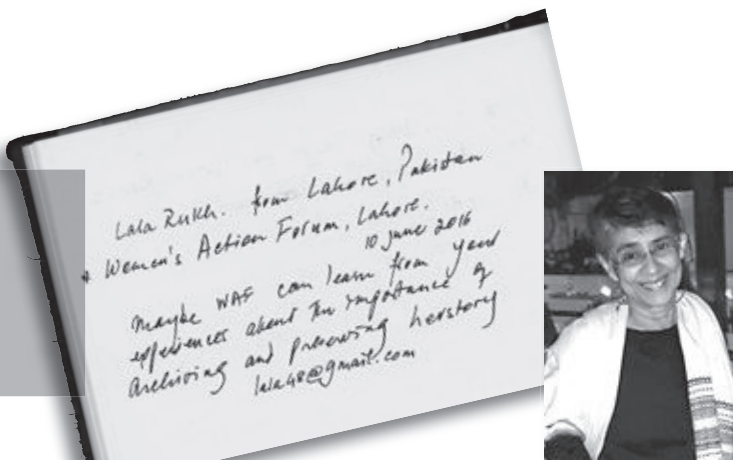 Lala Rukh. from Lahore, Pakistan
& Women's Action Forum, Lahore.
10 June 2016
Maybe WAF can learn from your
experiences about the importance of
archiving and preserving herstory